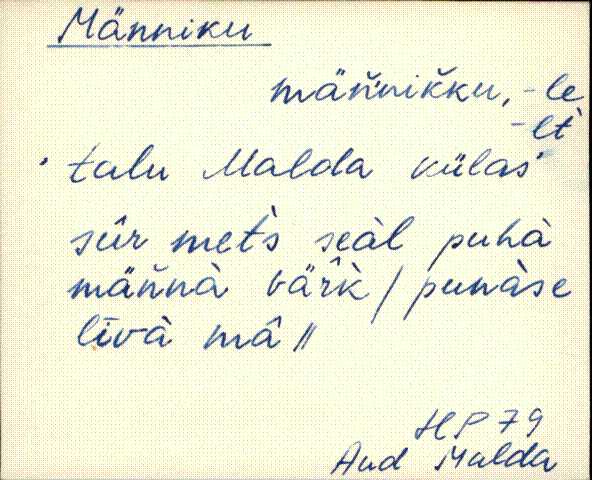 Männiku
mäňnikku, -le
-lt
talu Malda külas
sûr metˋs seàl puhà
mäňnà värˆk / punàse
līvà mâ //
HP 79
Aud Malda